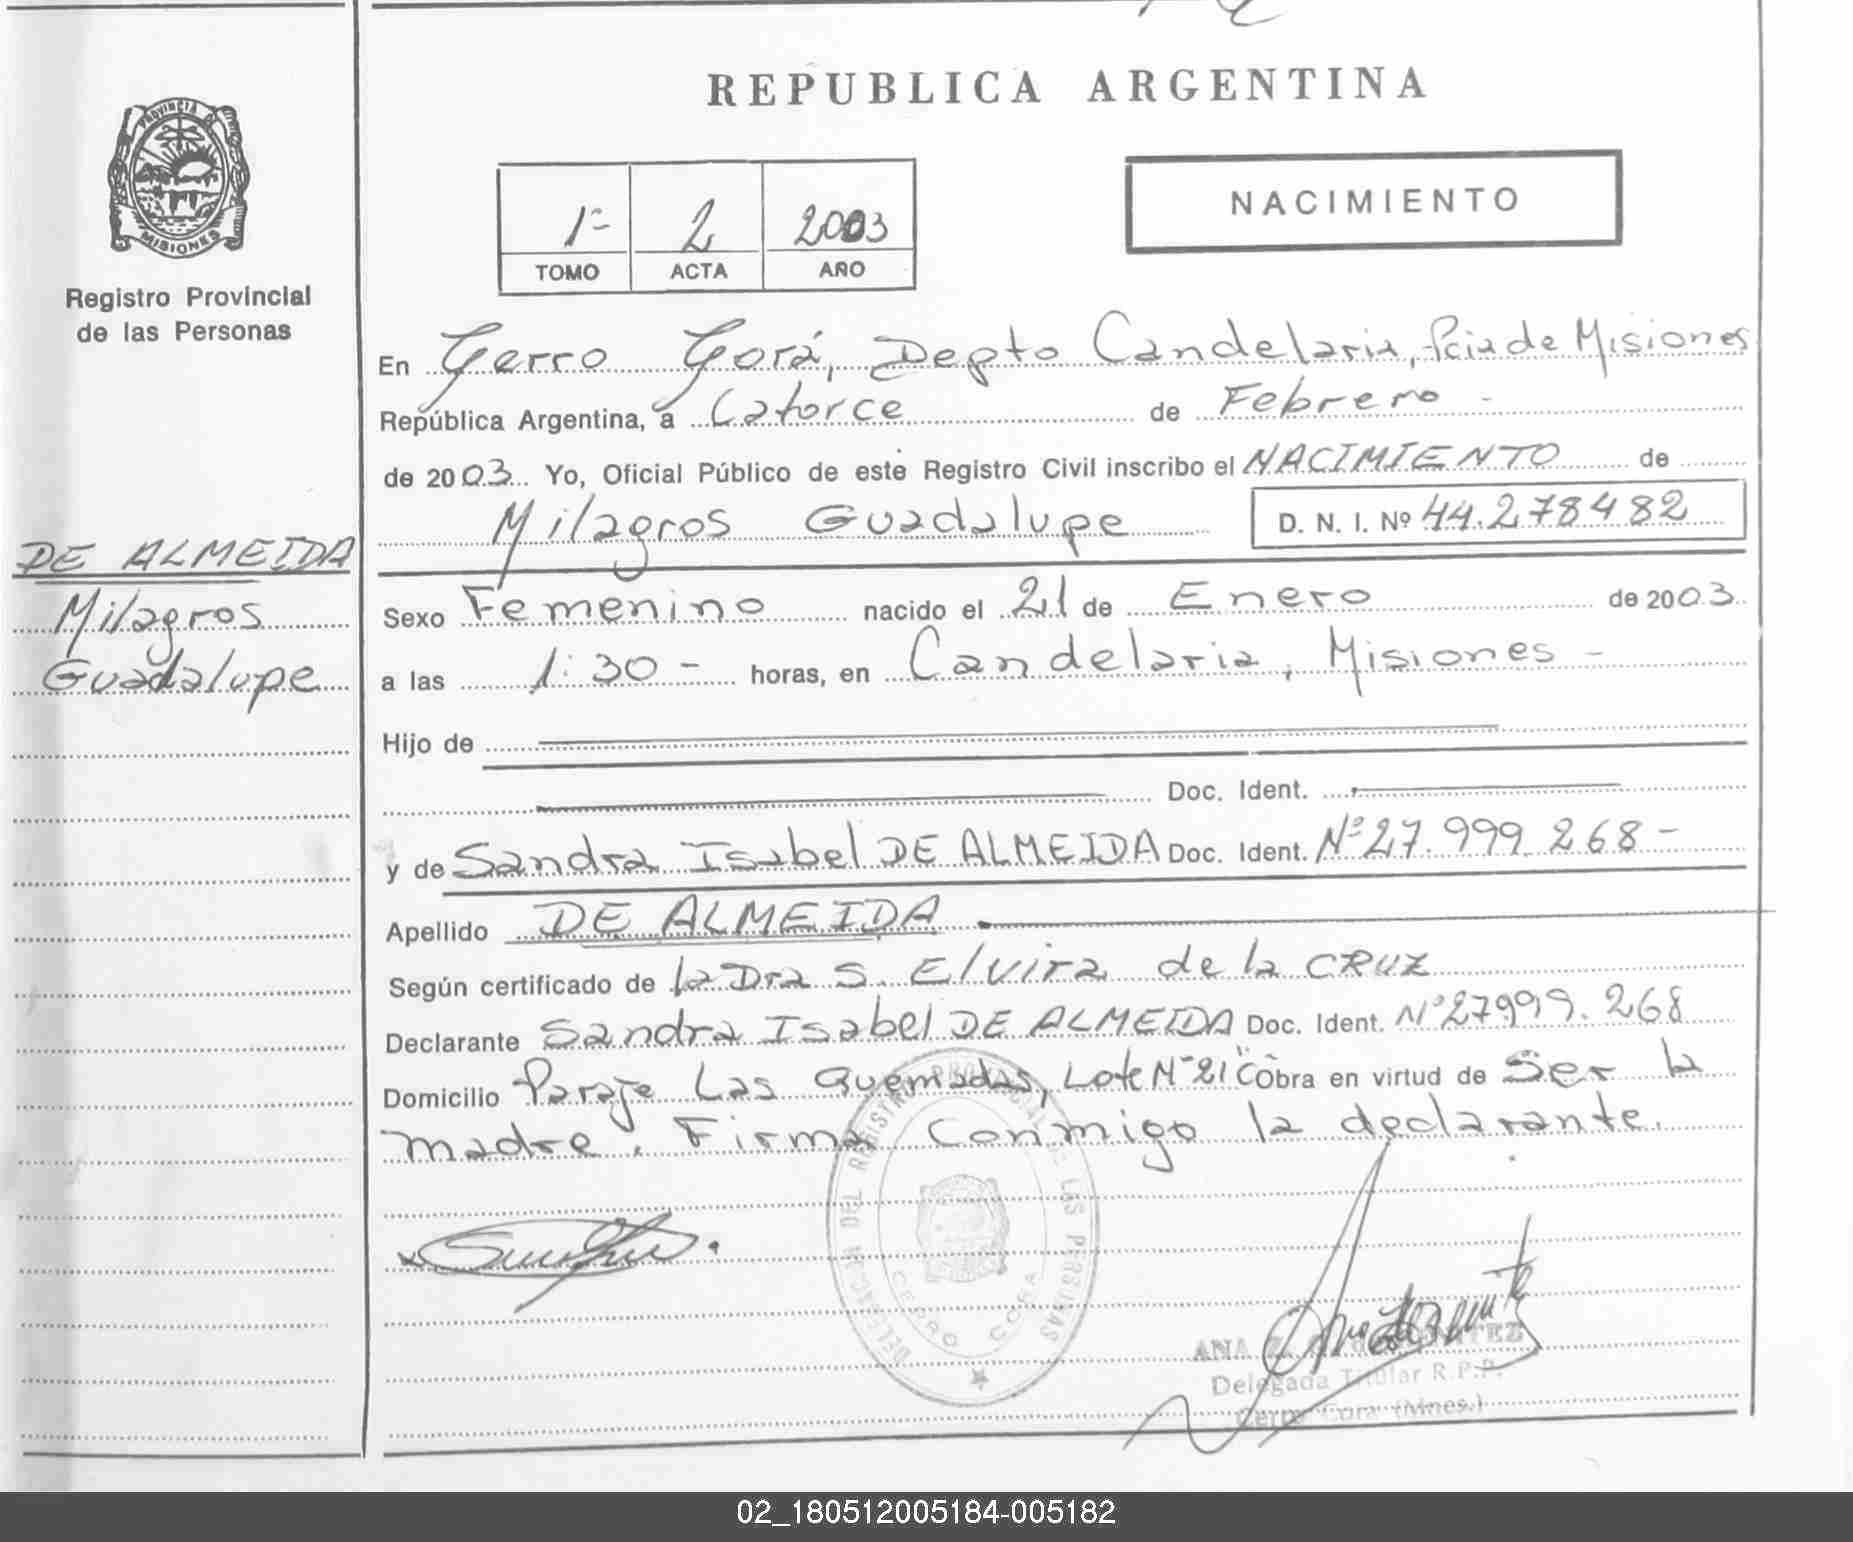 REPUBLICA ARGENTINA
PROVINCIA DE
MISIONES
Registro Provincial
de las Personas
1º 2 2003
TOMO ACTA AÑO
NACIMIENTO
En Cerro Corá, Depto Candelaria, Pcia de Misiones
República Argentina, a Catorce de Febrero -
de 2003. Yo, Oficial Público de este Registro Civil inscribo el NACIMIENTO de
Milagros Guadalupe D. N. I. Nº 44.278482
DE ALMEIDA
Milagros
Guadalupe
Sexo Femenino nacido el 21 de Enero de 2003.
a las 1:30 - horas, en Candelaria, Misiones -
Hijo de
Doc. Ident.
y de Sandra Isabel DE ALMEIDA Doc. Ident. Nº 27.999.268 -
Apellido DE ALMEIDA.
Según certificado de la Dra S. Elvira de la CRUZ
Declarante Sandra Isabel DE ALMEIDA Doc. Ident. Nº 27.999.268
Domicilio Paraje Las Quemadas, Lote Nº 21 "C" Obra en virtud de Ser la
madre. Firma Conmigo la declarante.
DELEGACION DEL REGISTRO PROVINCIAL DE LAS PERSONAS
CERRO CORA
ANA
Delegada Titular R.P.P.
Cerro Cora (Mnes.)
02_180512005184-005182